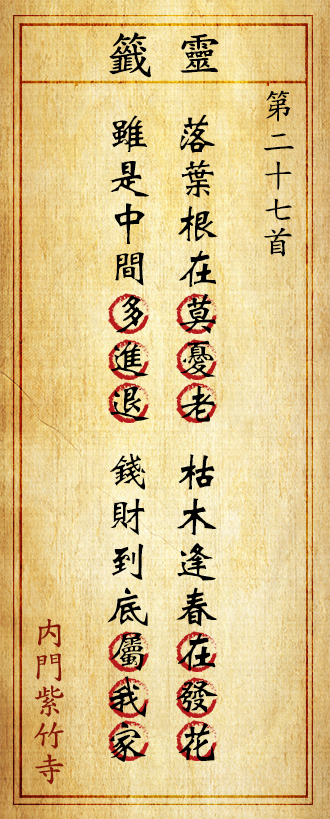 靈籤
第二十七首
落葉根在莫憂老
枯木逢春在發花
雖是中間多進退
錢財到底屬我家
内門紫竹寺